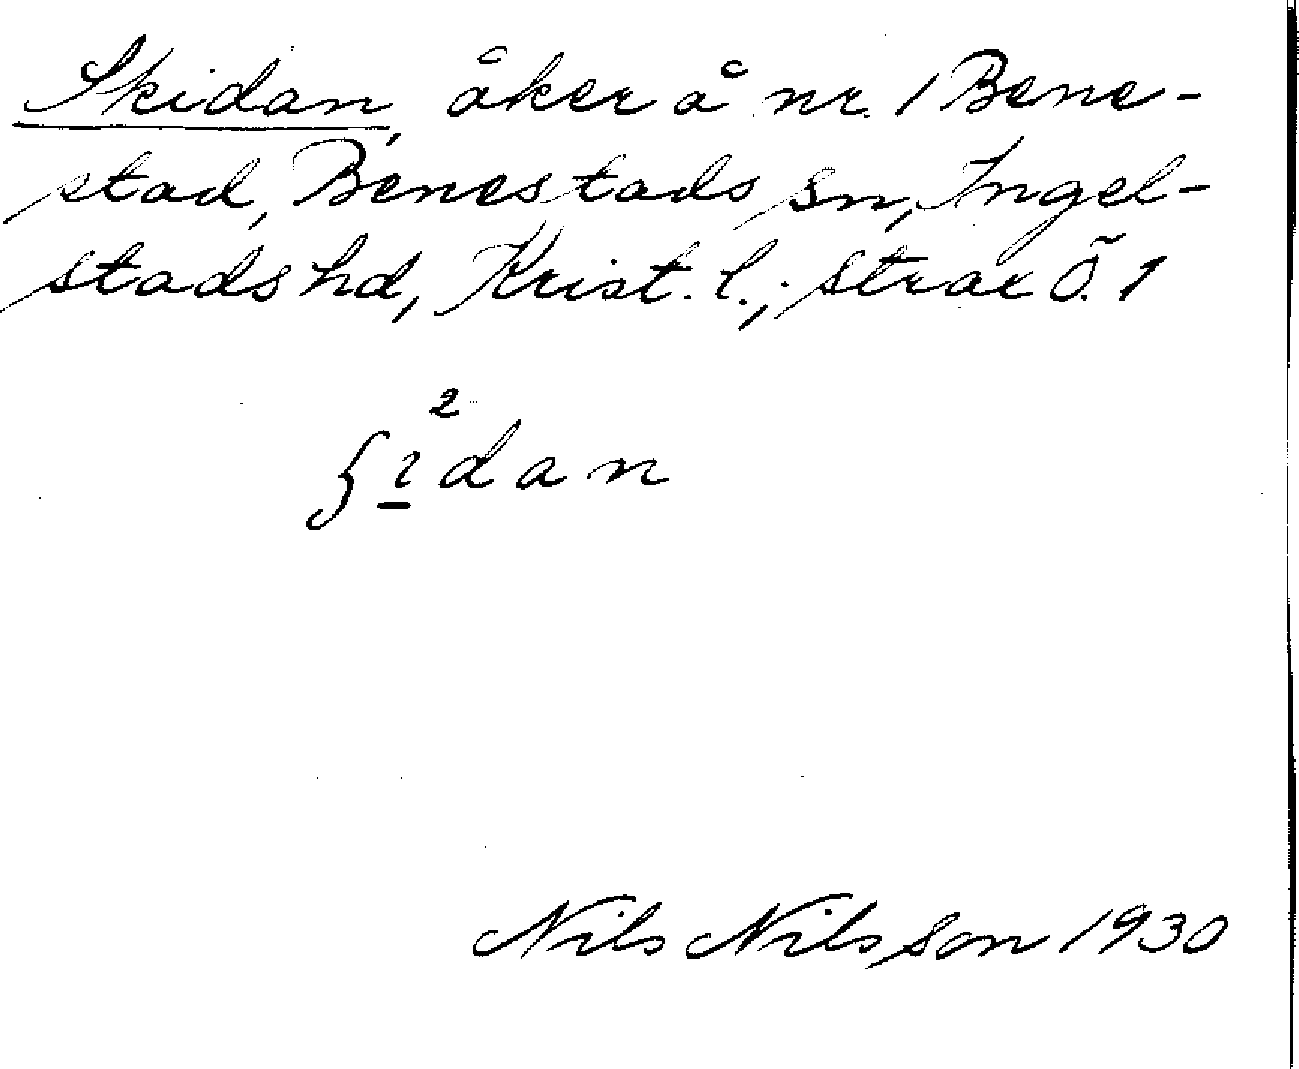 Skidan, åker å nr. 1 Bene-
stad, Benestads sn, Ingel-
stads hd, Krist. l.; strax Ö. 1
2
ʃi̱dan
Nils Nilsson 1930